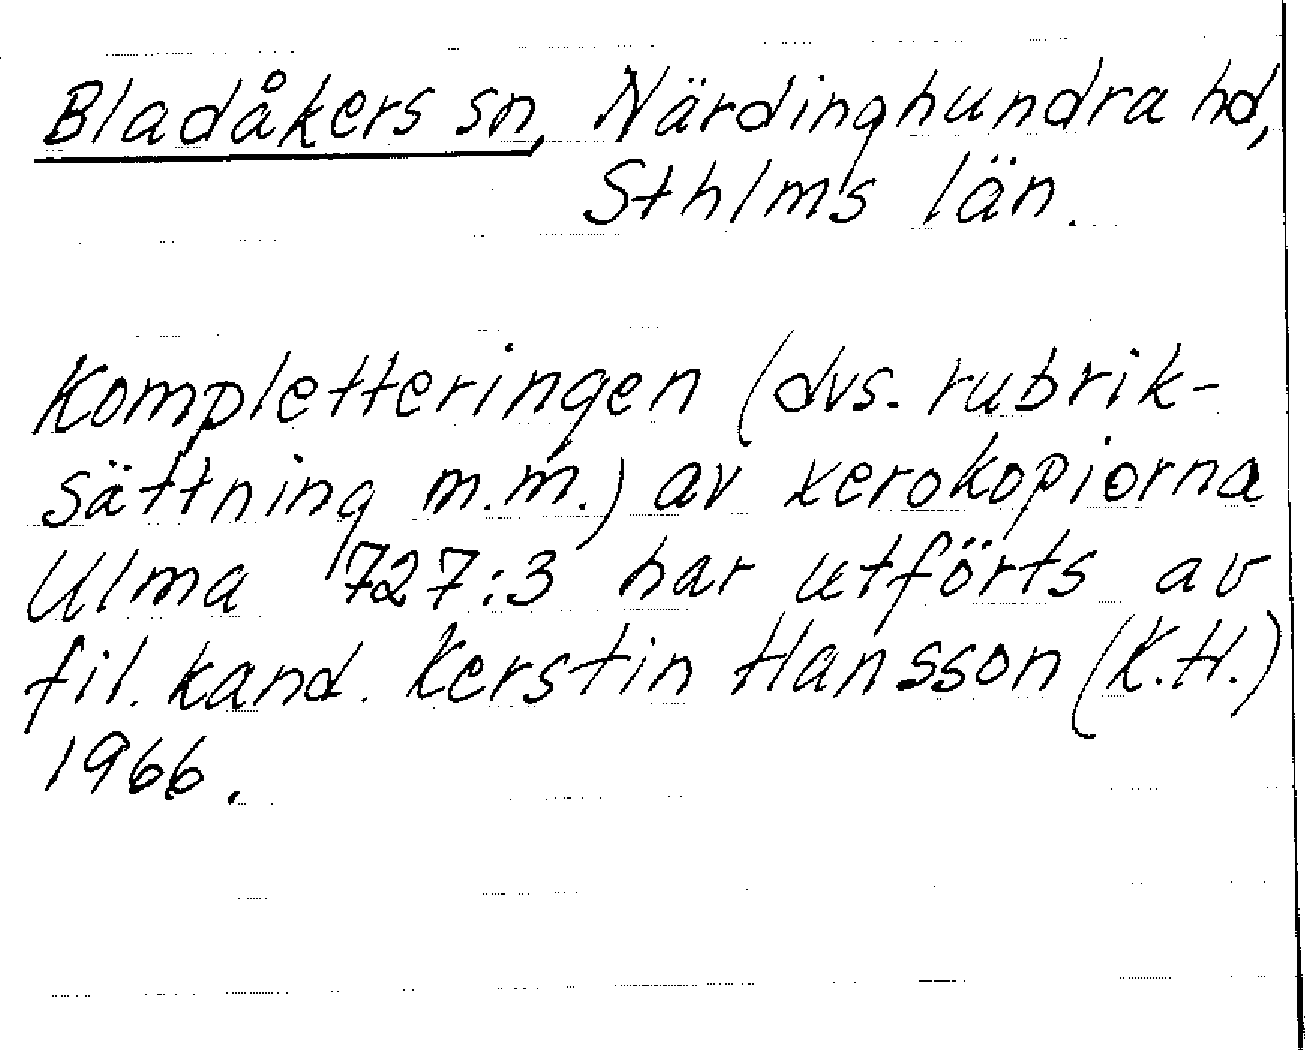 Bladåkers sn, Närdinghundra hd,
Sthlms län.
Kompletteringen (dvs. rubrik-
sättning m.m.) av xerokopiorna
Ulma 727:3 har utförts av
fil. kand. Kerstin Hansson (K.H.)
1966.